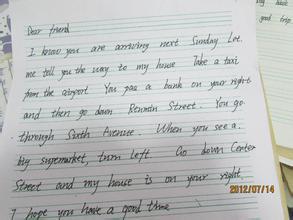 Dear friend
I know you are arriving next Sunday Let
me tell you the way to my house Take a taxi
from the airport You pass a bank on your right
and then go down Street. You go
through Sixth Avenue. When you see a
big supermarket, turn left. Go down Center
Street and my house is on your right,
I hope you have a good time
good trip
2012/07/14